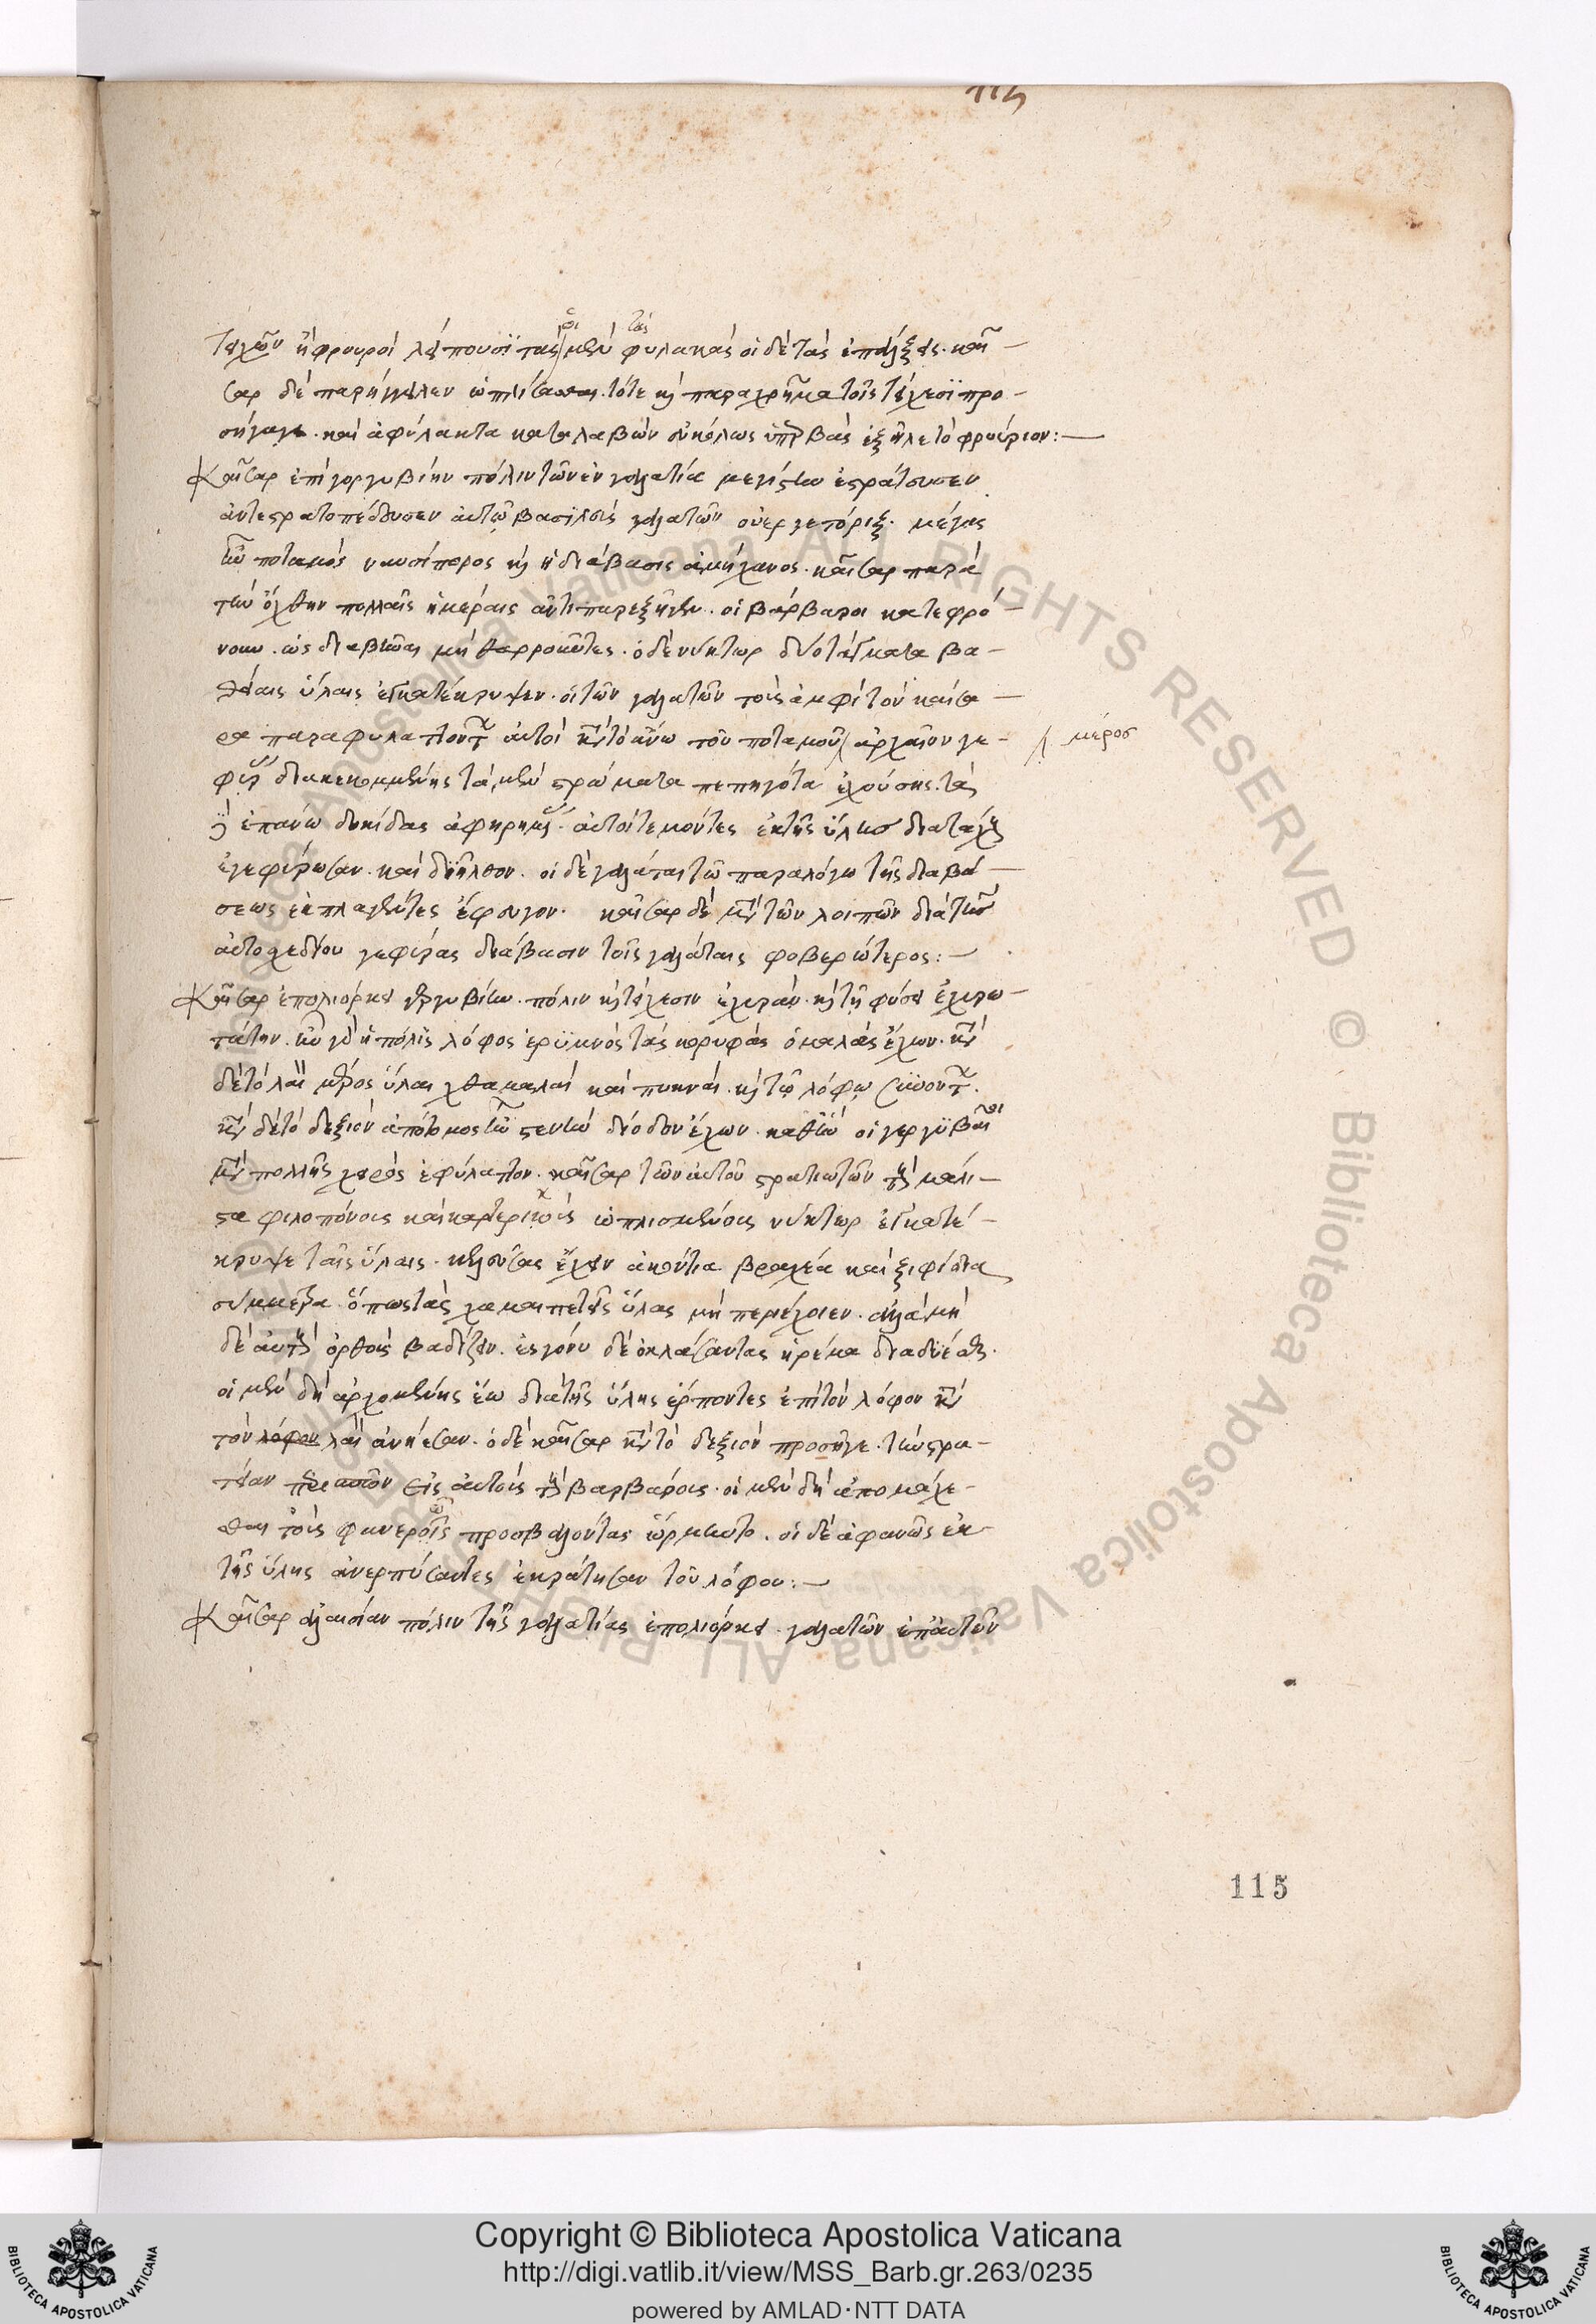 115
τειχῶν ἢ φρουροὶ λείπουσι τὰς οἱ μὲν τὰς φυλακὰς οἱ δὲ τὰς ἐπάλξεις. καῖ
σαρ δὲ παρήγγειλεν ὡπλίσθαι. τότε καὶ παραχρῆμα τοῖς τείχεσι προ
σήγαγε. καὶ ἀφύλακτα καταλαβὼν εὐκόλως ὑπερβὰς ἐξεῖλε τὸ φρούριον:
Καῖσαρ ἐπὶ γοργυβίην πόλιν τῶν ἐν γαλατία μεγίστην ἐστράτευσεν
ἀντεστρατοπέδευσεν αὐτῷ βασιλεὺς γαλατῶν οὐεργετόριξ. μέγας
ἦν ποταμὸς ναυσίπορος καὶ ἡ διάβασις ἀμήχανος. καῖσαρ παρὰ
τὴν ὄχθην πολλαῖς ἡμέραις ἀντιπαρεξῆγεν. οἱ βάρβαροι κατεφρό
νουν. ὡς διαβῆναι μὴ θαρροῦντες. ὁ δὲ νύκτωρ δύο τάγματα βα
θείαις ὕλαις ἐγκατέκρυψεν. οἱ τῶν γαλατῶν τοὺς ἀμφὶ τὸν καίσα
ρα παραφυλαττόντων αὐτοὶ κατὰ τὸ ἄνω τοῦ ποταμοῦ ἀρχαίου γε
μέρος
φύρας διακεκομμένης τὰ μὲν στρώματα πεπηγότα ἐχούσης. τὰς
δὲ ἐπάνω δοκίδας ἀφῃρημένης. αὐτοὶ τεμόντες ἐκ τῆς ὕλης διὰ ταχέων
ἐγεφύρωσαν. καὶ διῆλθον. οἱ δὲ γαλάται τῶ παραλόγω τῆς διαβά
σεως ἐκπλαγέντες ἔφευγον. καῖσαρ δὲ μετὰ τῶν λοιπῶν διὰ τῆς
αὐτοσχεδίου γεφύρας διάβασιν τοῖς γαλάταις φοβερώτερος:
Καῖσαρ ἐπολιόρκει γεργυβίαν. πόλιν καὶ τείχεσιν ἐχυρὰν. καὶ τῇ φύσει ἐχυρω
τάτην. ἦν γὰρ ἡ πόλις λόφος ἐρυμνὸς τὰς κορυφὰς ὁμαλὰς ἔχων. κατὰ
δὲ τὸ λαιὸν μέρος ὗλαι χθαμαλαὶ καὶ πυκναὶ. καὶ τῷ λόφῳ
κατὰ δὲ τὸ δεξιὸν ἀπότομος ἦν στενὴν δίοδον ἔχων. καθ' ἣν οἱ γεργυβῖται
μετὰ πολλῆς χειρὸς ἐφύλαττον. καῖσαρ τῶν αὐτοῦ στρατιωτῶν τοὺς μάλι
στα φιλοπόνους καὶ καρτερικοὺς ὡπλισμένους νύκτωρ ἐγκατέ
κρυψε ταῖς ὕλαις. κελεύσας ἔχειν ἀκόντια βραχέα καὶ ξιφίδια
σύμμετρα ὅπως τὰς χαμαιπετεῖς ὕλας μὴ περιέχοιεν. ἀλλὰ μὴ
δὲ αὐτοὺς ὀρθοὺς βαδίζειν. ἐς γόνυ δὲ ὀκλάζοντας ἠρέμα διαδύεσθαι.
οἱ μὲν δὴ ἀρχομένης ἕω διὰ τῆς ὕλης ἕρποντες ἐπὶ τὸν λόφον κατὰ
τὸν λόφον λαιὸν ἀνήεσαν. ὁ δὲ καῖσαρ κατὰ τὸ δεξιὸν προσῆγε. τὴν στρα
τείαν εἰς αὐτοὺς τοὺς βαρβάρους. οἱ μὲν δὴ ἀπομάχε
σθαι τοὺς φανερῶς προσβάλλοντας ὥρμωντο. οἱ δὲ ἀφανῶς ἐκ
τῆς ὕλης ἀνερπύσαντες ἐκράτησαν τοῦ λόφου:
Καῖσαρ ἀλαισίαν πόλιν τῆς γαλατίας ἐπολιόρκει. γαλατῶν ἐπ' αὐτὸν
115
Copyright © Biblioteca Apostolica Vaticana
http://digi.vatlib.it/view/MSS_Barb.gr.263/0235
powered by AMLAD·NTT DATA
BIBLIOTECA APOSTOLICA VATICANA
BIBLIOTECA APOSTOLICA VATICANA
© Biblioteca Apostolica Vaticana ALL RIGHTS RESERVED